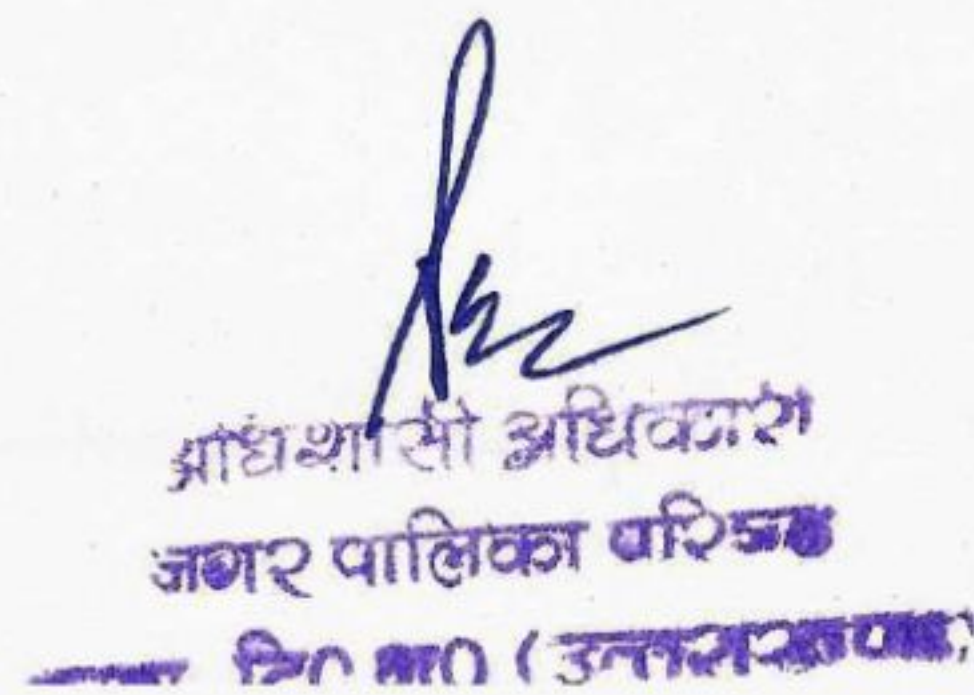 अधिशासी अधिकारी
नगर पालिका परिषद
(उत्तराखण्ड)